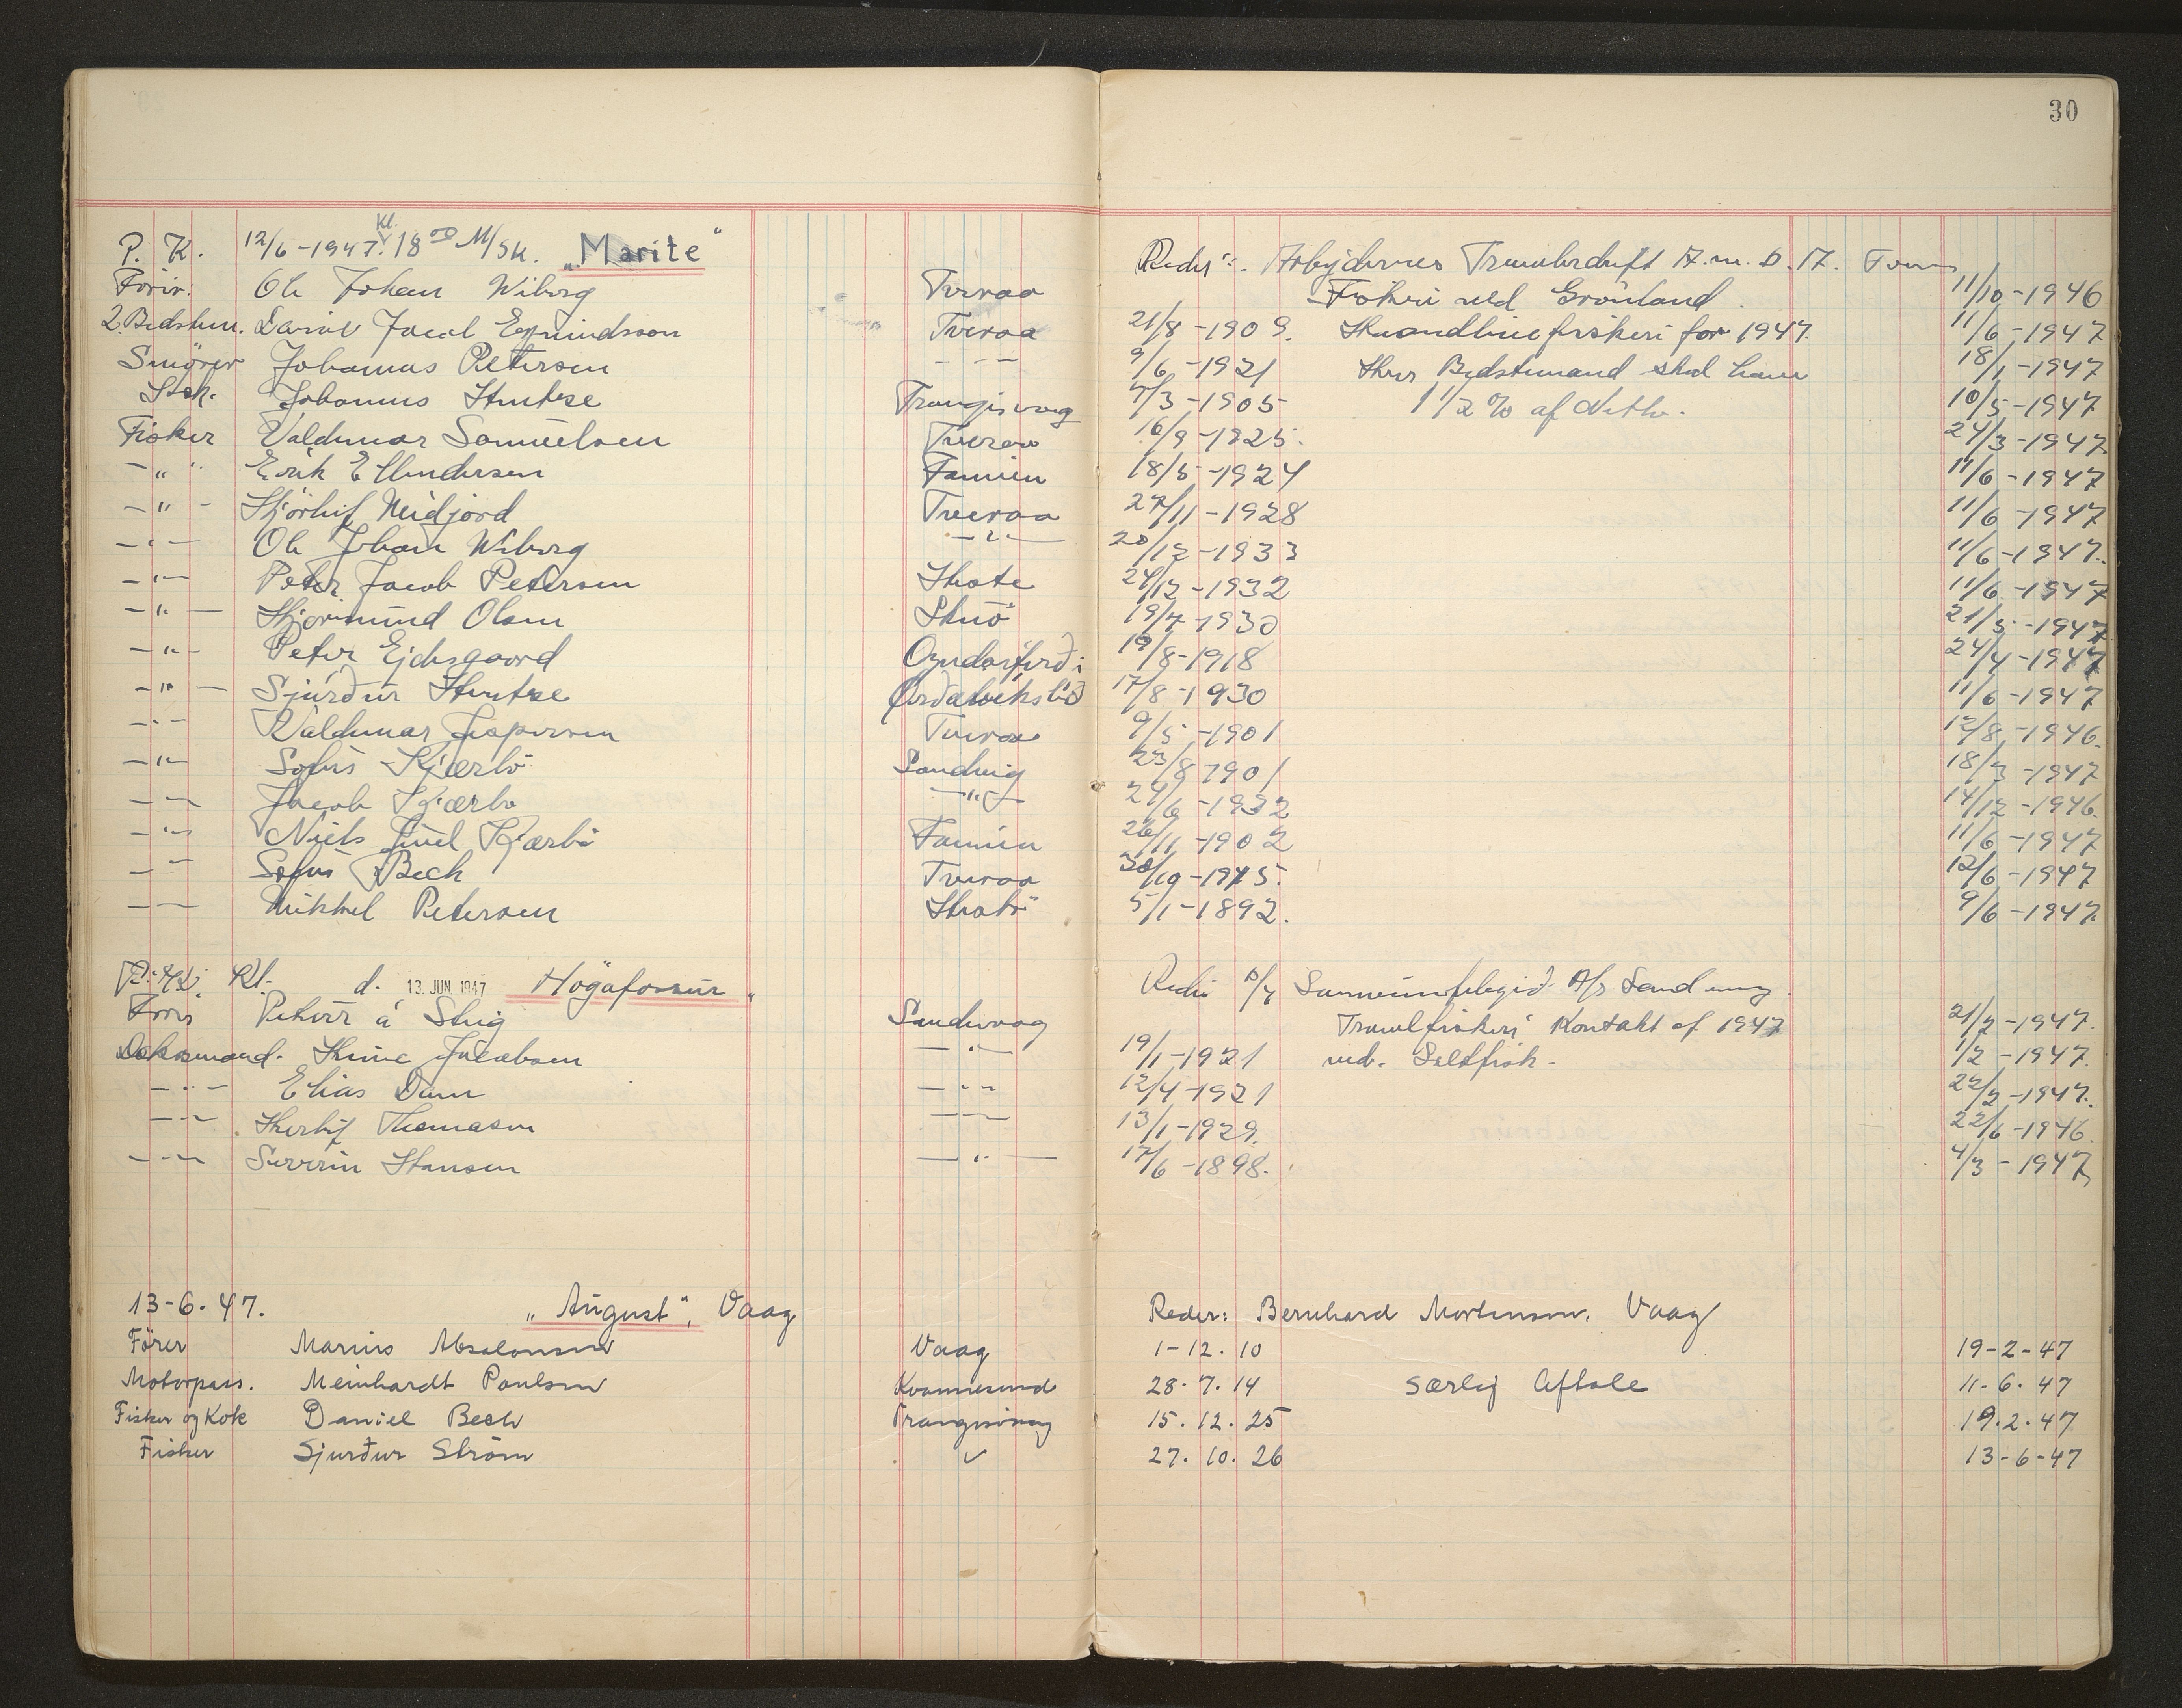 30
P. K. 12/6-1947. Kl. 18 00 M/Sk. "Marite" Reder:
Förer: Ole Johan Wiborg Tveraa Fiskeri ved Grönland. 11/10-1946
2. Bedstem. Daniel Jacob Tveraa 21/8-1909. Haandlinefiskeri for 1947. 11/6-1947
Smörer Johannus Petersen - - - 9/6-1921 Hver Bedstemand skal have 18/1-1947
Kok. Johannus Hentze Trangisvaag 7/3-1905 1 1/2 % af Netto. 10/5-1947
Fisker Valdemar Samuelsen Tveraa 16/9-1925. 24/3-1947
- " - Erik Ellendersen Famien 18/5-1924 11/6-1947
- " - Hjörleif Midjord Tveraa 27/11-1928 11/6-1947
- " - Ole Johan Wiborg - " - 20/12-1933 11/6-1947.
- " - Peter Jacob Petersen 24/12-1932 11/6-1947
- " - Olsen Skuö 19/7-1930 21/5-1947
- " - Peter Ejdesgaard 19/8-1918 24/4-1947
- " - Sjúrður Hentze 17/8-1930 11/6-1947
- " - Valdemar Jespersen Tveraa 9/5-1901 12/8-1946.
- " - Sofus Kjærbö Sandvig 23/8-1901 18/3-1947
- " - Jacob Kjærbo - " - 24/6-1932 14/12-1946.
- " - Niels Juul Kjærbö Famien 26/11-1902 11/6-1947
- " - Sofus Bech Tveraa 30/10-1915. 12/6-1947
- " - Mikkel Petersen 5/1-1892. 9/6-1947.
Kl. d. 13. JUN. 1947 "Högafossur" A/S Sandvaag
á Steig Sandvaag Trawlfiskeri Kontrakt af 1947 21/2-1947.
Dæksmand. Jacobsen - " - 19/1-1921 ved. Saltfisk. 1/2-1947.
- " - Elias Dam - " - 12/4-1921 22/2-1947.
- " - Herleif Thomasen - " - 13/1-1929. 22/6-1946.
- " - Severin Hansen - " - 17/6-1898. 4/3-1947
13-6-47. "August", Vaag Reder: Bernhard Mortensen, Vaag
Förer Marius Absalonsen Vaag 1-12.10 19-2-47
Motorpass. Meinhardt Poulsen Kvannesund 28.7.14 Særlig Aftale 11-6.47
Fisker og Kok Daniel Bech Trangisvaag 15.12.25 19.2.47
Fisker Sjurður Ström 27.10.26 13-6-47